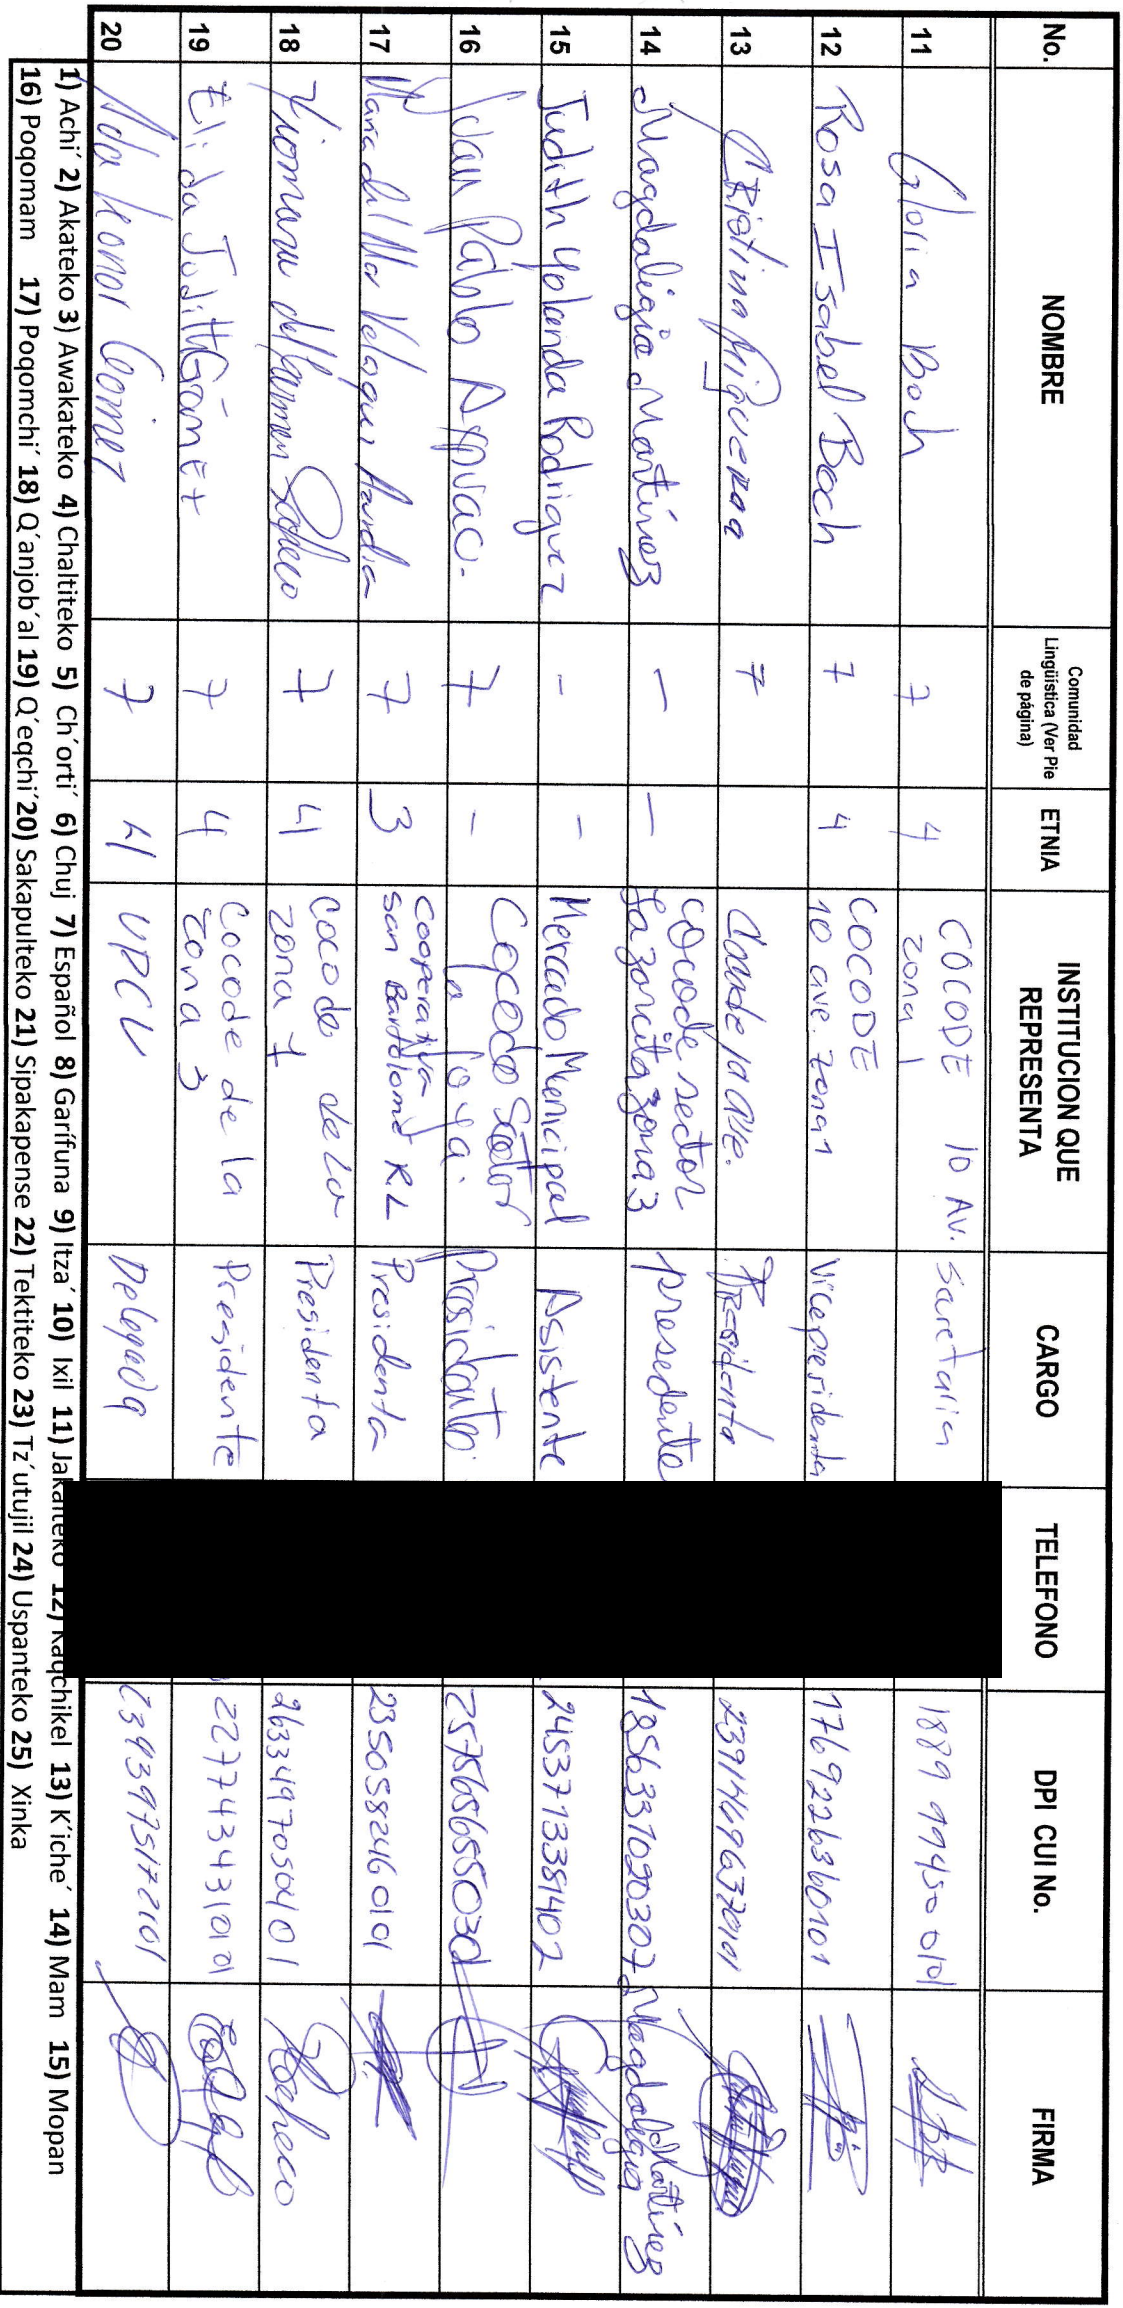 No. NOMBRE Comunidad Lingüística (Ver Pie de página) ETNIA INSTITUCION QUE REPRESENTA CARGO TELEFONO DPI CUI No. FIRMA
11 Gloria Boch 7 4 COCODE 10 Av. zona 1 Saretaria 1889 99450 0101
12 Rosa Isabel Boch 7 4 COCODE 10 ave. zona 1 Viceperidenta 1769226360101
13 7 Presidenta
14 Magdaligia Martínez - - cocode sector la zarcita zona 3 presedente 1856331020307 Magdaligia Martínez
15 Judith Yolanda Rodriguez - - Mercado Municipal Asistente 2453713381402
16 Juan Pablo 7 - Cocode Sector la Joya.
17 Maria del Mar 7 3 Cooperativa San Bartolomé RL Presidenta 2350558246 0101
18 del Carmen 7 4 Cocode de la zona 7 Presidenta 2633497050401
19 Elida Judith 7 4 Cocode de la zona 3 Presidente 2277434310101
20 7 4 Delegada
1) Achi´ 2) Akateko 3) Awakateko 4) Chaltiteko 5) Ch´orti´ 6) Chuj 7) Español 8) Garífuna 9) Itza´ 10) Ixil 11) Jakalteko 12) Kaqchikel 13) K´iche´ 14) Mam 15) Mopan
16) Poqomam 17) Poqomchi´ 18) Q´anjob´al 19) Q´eqchi´ 20) Sakapulteko 21) Sipakapense 22) Tektiteko 23) Tz´utujil 24) Uspanteko 25) Xinka